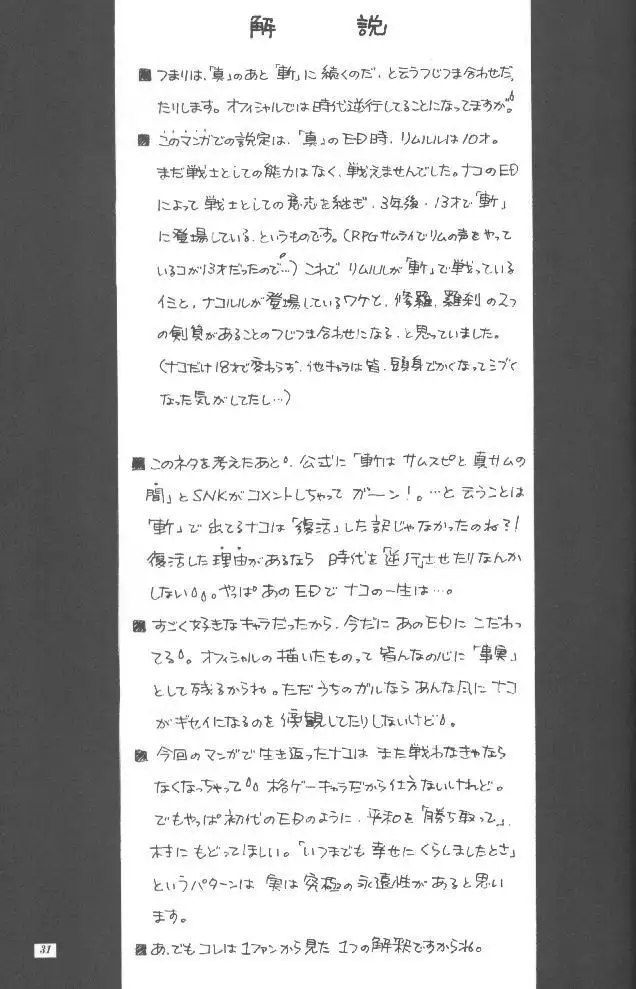 解　説
■つまりは、「真」のあと「斬」に続くのだ、と云うつじつま合わせだ
たりします。オフィシャルでは時代逆行してることになってますが。
■このマンガでの設定は、「真」のED時、リムルルは10才。
まだ戦士としての能力はなく、戦えませんでした。ナコのED
によって戦士としての意志を継ぎ、3年後・13才で「斬」
に登場している、というものです。(RPGサムライでリムの声をやって
いるコが13才だったので…)これでリムルルが「斬」で戦っている
イミと、ナコルルが登場しているワケと、修羅、羅刹の2つ
の剣質があることのつじつま合わせになる、と思っていました。
(ナコだけ18才で変わらず、他キャラは皆、頭身でかくなってシブく
なった気がしてたし…)
■このネタを考えたあと、公式に「斬はサムスピと真サムの
間」とSNKがコメントしちゃってガーン!。…と云うことは
「斬」で出てるナコは「復活」した訳じゃなかったのね?!
復活した理由があるなら時代を逆行させたりなんか
しない。やっぱあのEDでナコの一生は…。
■すごく好きなキャラだったから、今だにあのEDにこだわっ
てる。オフィシャルの描いたものって皆んなの心に「事実」
として残るからね。ただうちのガルならあんな風にナコ
がギセイになるのを傍観してたりしないけど。
■今回のマンガで生き返ったナコはまた戦わなきゃなら
なくなっちゃって 格ゲーキャラだから仕方ないけれど。
でもやっぱ初代のEDのように、平和を「勝ち取って」、
村にもどってほしい。「いつまでも幸せにくらしましたとさ」
というパターンは実は究極の永遠性があると思い
ます。
■あ、でもコレは1ファンから見た1つの解釈ですからね。
31